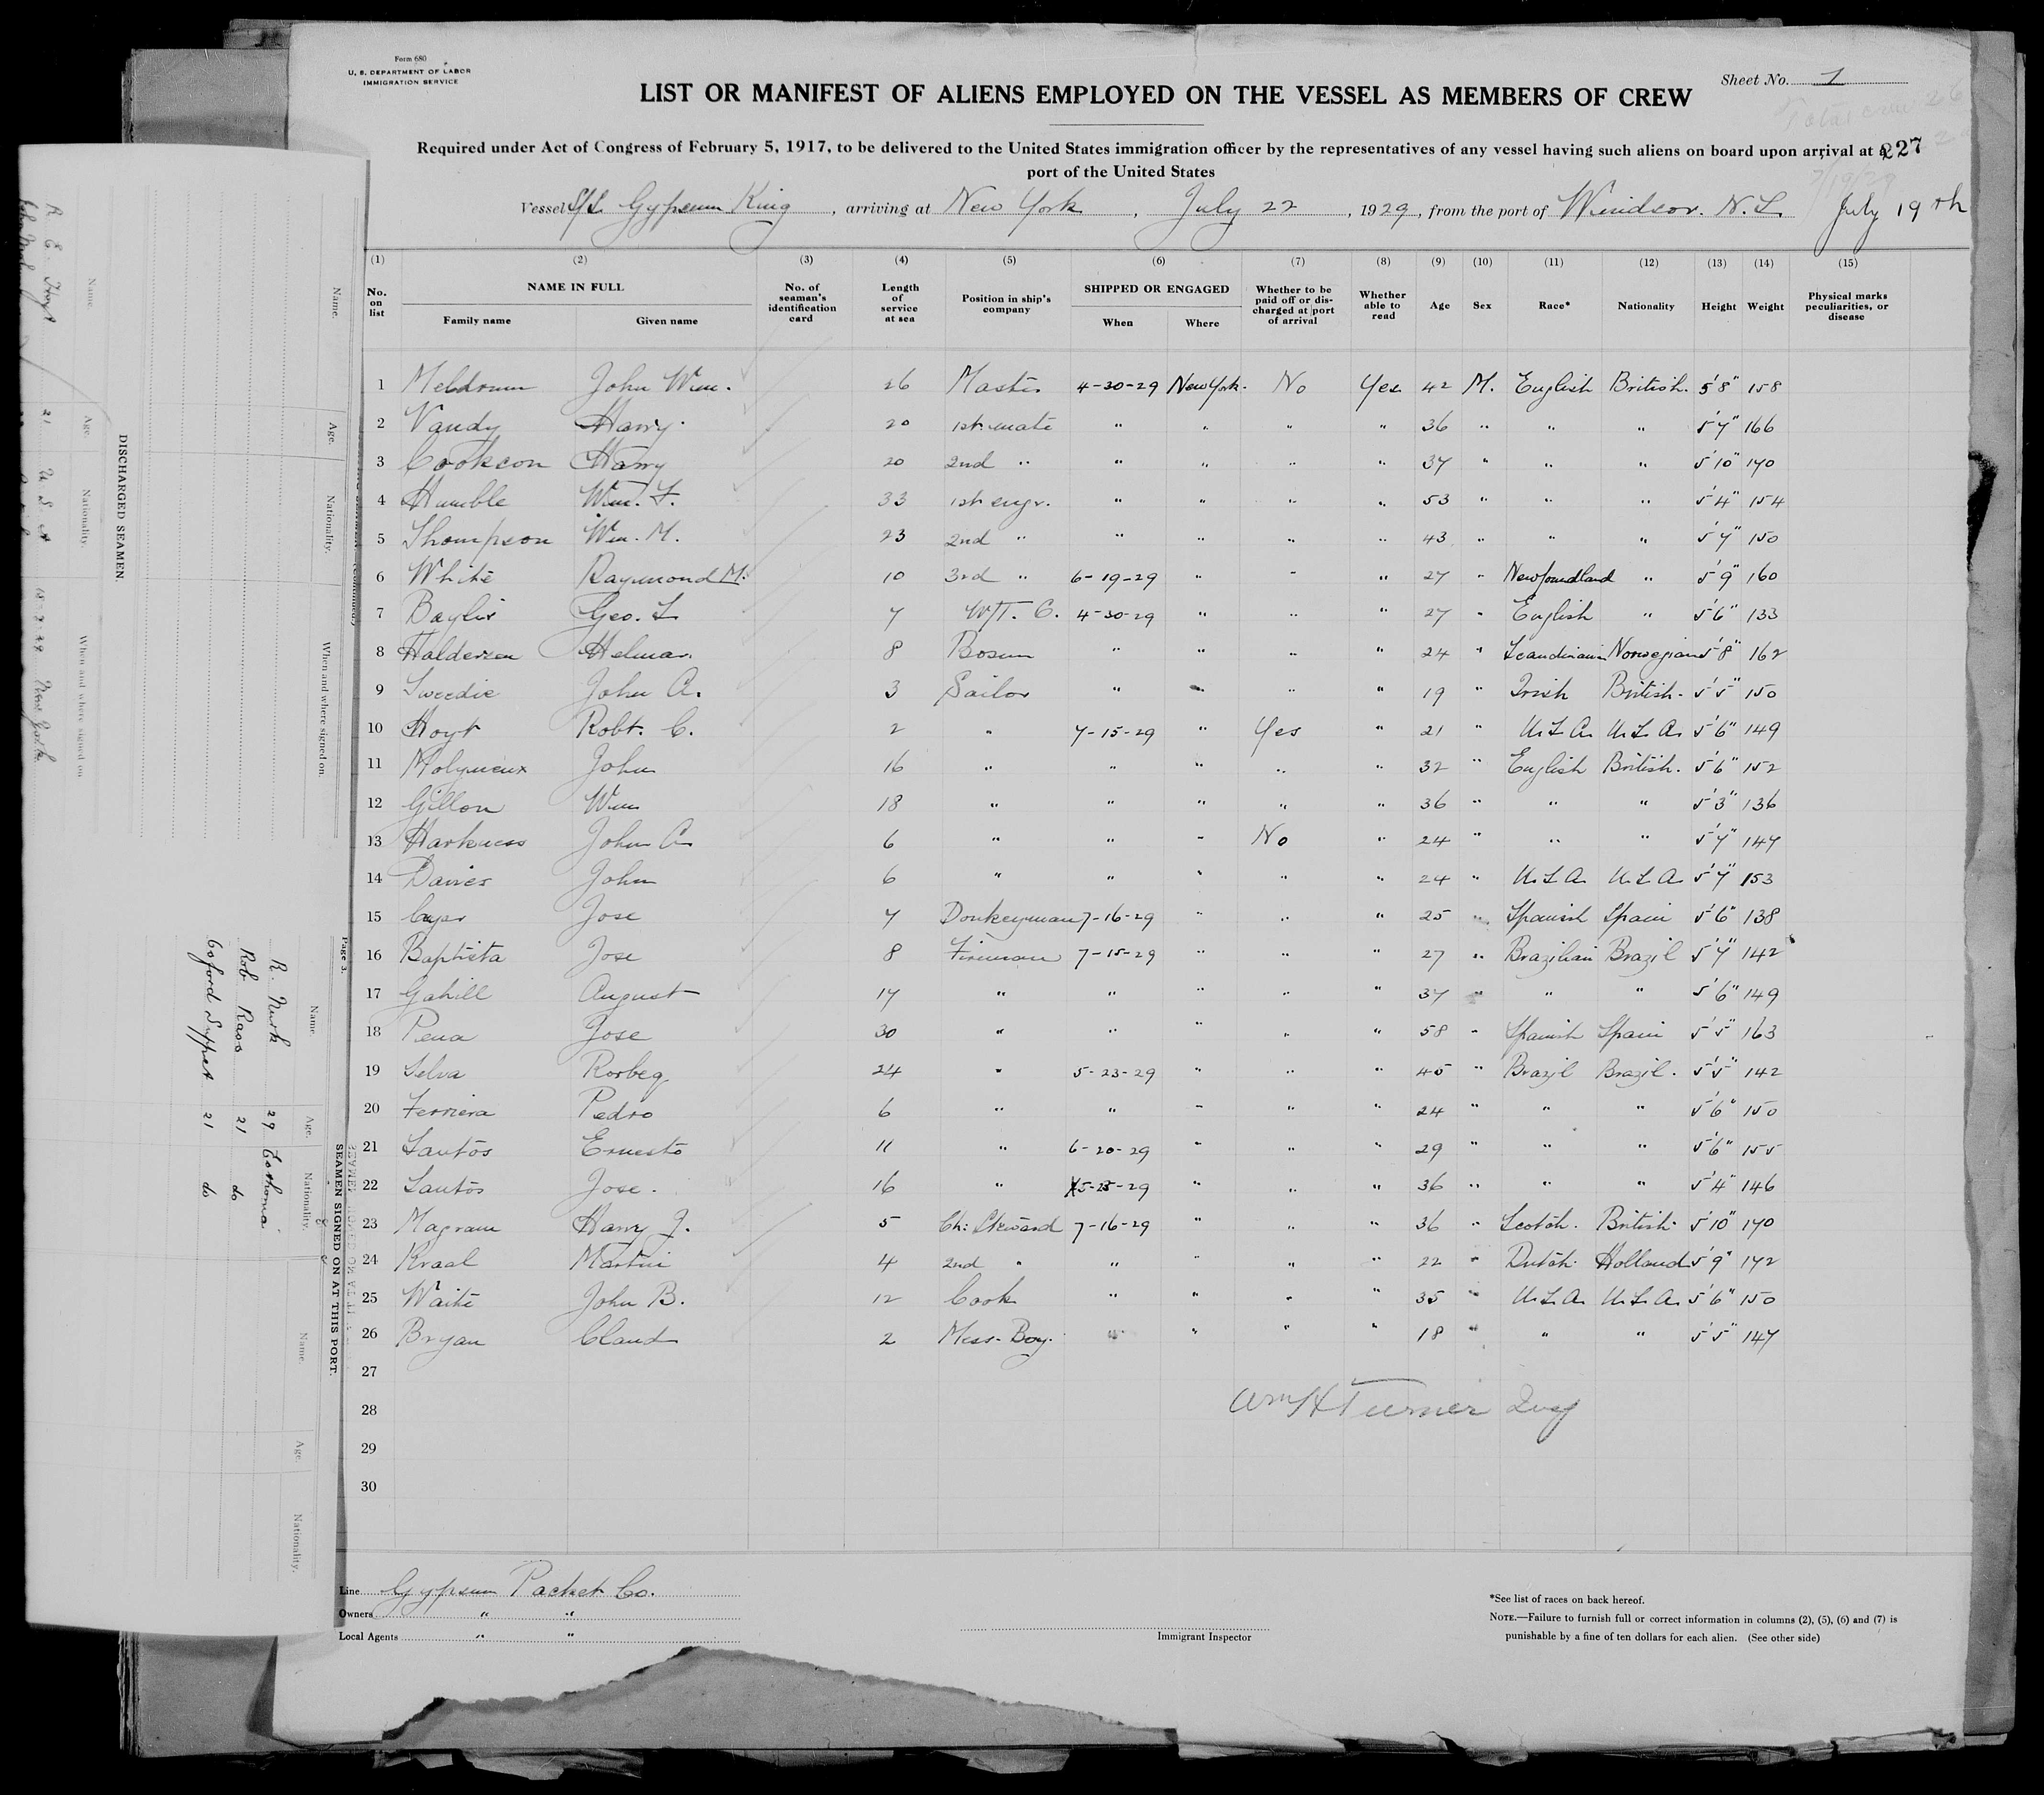 Form 680
U. S. DEPARTMENT OF LABOR
IMMIGRATION SERVICE
Sheet No. 1
LIST OR MANIFEST OF ALIENS EMPLOYED ON THE VESSEL AS MEMBERS OF CREW
Total crew 26
Required under Act of Congress of February 5, 1917, to be delivered to the United States immigration officer by the representatives of any vessel having such aliens on board upon arrival at a 227
port of the United States
7/19/29
Vessel S/S Gypsum King, arriving at New York, July 22, 1929, from the port of Windsor. N.S. July 19th
(1) (2) (3) (4) (5) (6) (7) (8) (9) (10) (11) (12) (13) (14) (15)
No. on list NAME IN FULL Family name Given name No. of seaman's identification card Length of service at sea Position in ship's company SHIPPED OR ENGAGED When Where Whether to be paid off or discharged at port of arrival Whether able to read Age Sex Race* Nationality Height Weight Physical marks peculiarities, or disease
1 Meldrum John Wm. 26 Master 4-30-29 New York. No Yes 42 M. English British. 5'8" 158
2 Vandy Harry 20 1st mate " " " " 36 " " " 5'7" 166
3 Cookson Harry 20 2nd " " " " " 37 " " " 5'10" 170
4 Humble Wm. F. 33 1st engr. " " " " 53 " " " 5'4" 154
5 Thompson Wm. M. 23 2nd " " " " " 43 " " " 5'7" 150
6 White Raymond M. 10 3rd " 6-19-29 " " " 27 " Newfoundland " 5'9" 160
7 Baylis Geo. L. 7 W/T. O. 4-30-29 " " " 27 " English " 5'6" 133
8 Haldersen Helmar. 8 Bosun " " " " 24 " Scandinavian Norwegian 5'8" 162
9 Sweedie John A. 3 Sailor " " " " 19 " Irish British. 5'5" 150
10 Hoyt Robt. C. 2 " 7-15-29 " Yes " 21 " U.S.A. U.S.A. 5'6" 149
11 Molyneux John 16 " " " " " 32 " English British. 5'6" 152
12 Gillon Wm 18 " " " " " 36 " " " 5'3" 136
13 Harkness John A 6 " " " No " 24 " " " 5'7" 147
14 Davies John 6 " " " " " 24 " U.S.A. U.S.A. 5'7" 153
15 Jose 7 Donkeyman 7-16-29 " " " 25 " Spanish Spain 5'6" 138
16 Baptista Jose 8 Fireman 7-15-29 " " " 27 " Brazilian Brazil 5'7" 142
17 Gahill August 17 " " " " " 37 " " " 5'6" 149
18 Pena Jose 30 " " " " " 58 " Spanish Spain 5'5" 163
19 Selva Rosbeg 24 " 5-23-29 " " " 45 " Brazil Brazil. 5'5" 142
20 Ferriera Pedro 6 " " " " " 24 " " " 5'6" 150
21 Santos Ernesto 11 " 6-20-29 " " " 29 " " " 5'6" 155
22 Santos Jose. 16 " 5-25-29 " " " 36 " " " 5'4" 146
23 Magram Harry J. 5 Ch: Steward 7-16-29 " " " 36 " Scotch. British. 5'10" 170
24 Kraal Martin 4 2nd " " " " " 22 " Dutch. Holland 5'9" 172
25 Waite John B. 12 Cook " " " " 35 " U.S.A. U.S.A. 5'6" 150
26 Bryan Claud 2 Mess-Boy. " " " " 18 " " " 5'5" 147
27
28 Wm H Turner
29
30
Line Gypsum Packet Co.
Owners " "
Local Agents " "
Immigrant Inspector
*See list of races on back hereof.
NOTE.—Failure to furnish full or correct information in columns (2), (5), (6) and (7) is
punishable by a fine of ten dollars for each alien. (See other side)
Name. Age. Nationality. When and where signed on
R. E. Hoyt 21 U S A 15-7-29 New York
DISCHARGED SEAMEN.
Name. Age. Nationality. When and where signed on.
Page 3.
SEAMEN SIGNED ON AT THIS PORT.
Name. Age. Nationality. Name. Age. Nationality.
R. Nurk 29 Esthonia
Rob Rass 21 do
21 do